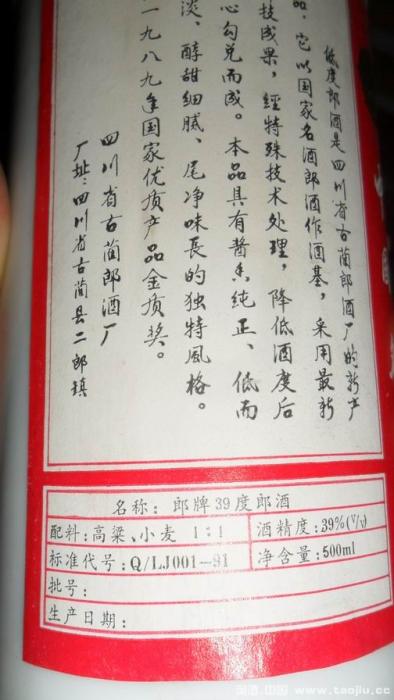 低度郎酒是四川省古蔺郎酒厂的新产
品，它以国家名酒郎酒作酒基，采用最新
技成果，經特殊技术处理，降低酒度后
心勾兑而成。本品具有醬香纯正、低而
淡、醇甜细腻、尾净味長的独特風格。
一九八九年国家优质产品金质奖。
四川省古蔺郎酒厂
厂址：四川省古蔺县二郎镇
名称：郎牌39度郎酒
配料：高粱、小麦 1：1
酒精度：39%(V/V)
标准代号：Q/LJ001—91
净含量：500ml
批号：
生产日期：
www.taojiu.cc